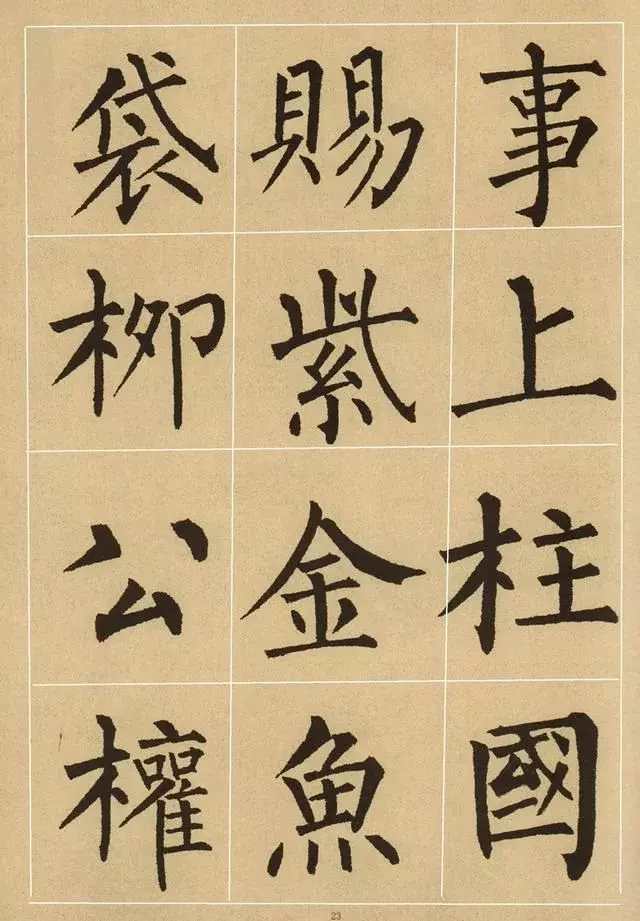 事上柱國
賜紫金魚
袋柳公權
23